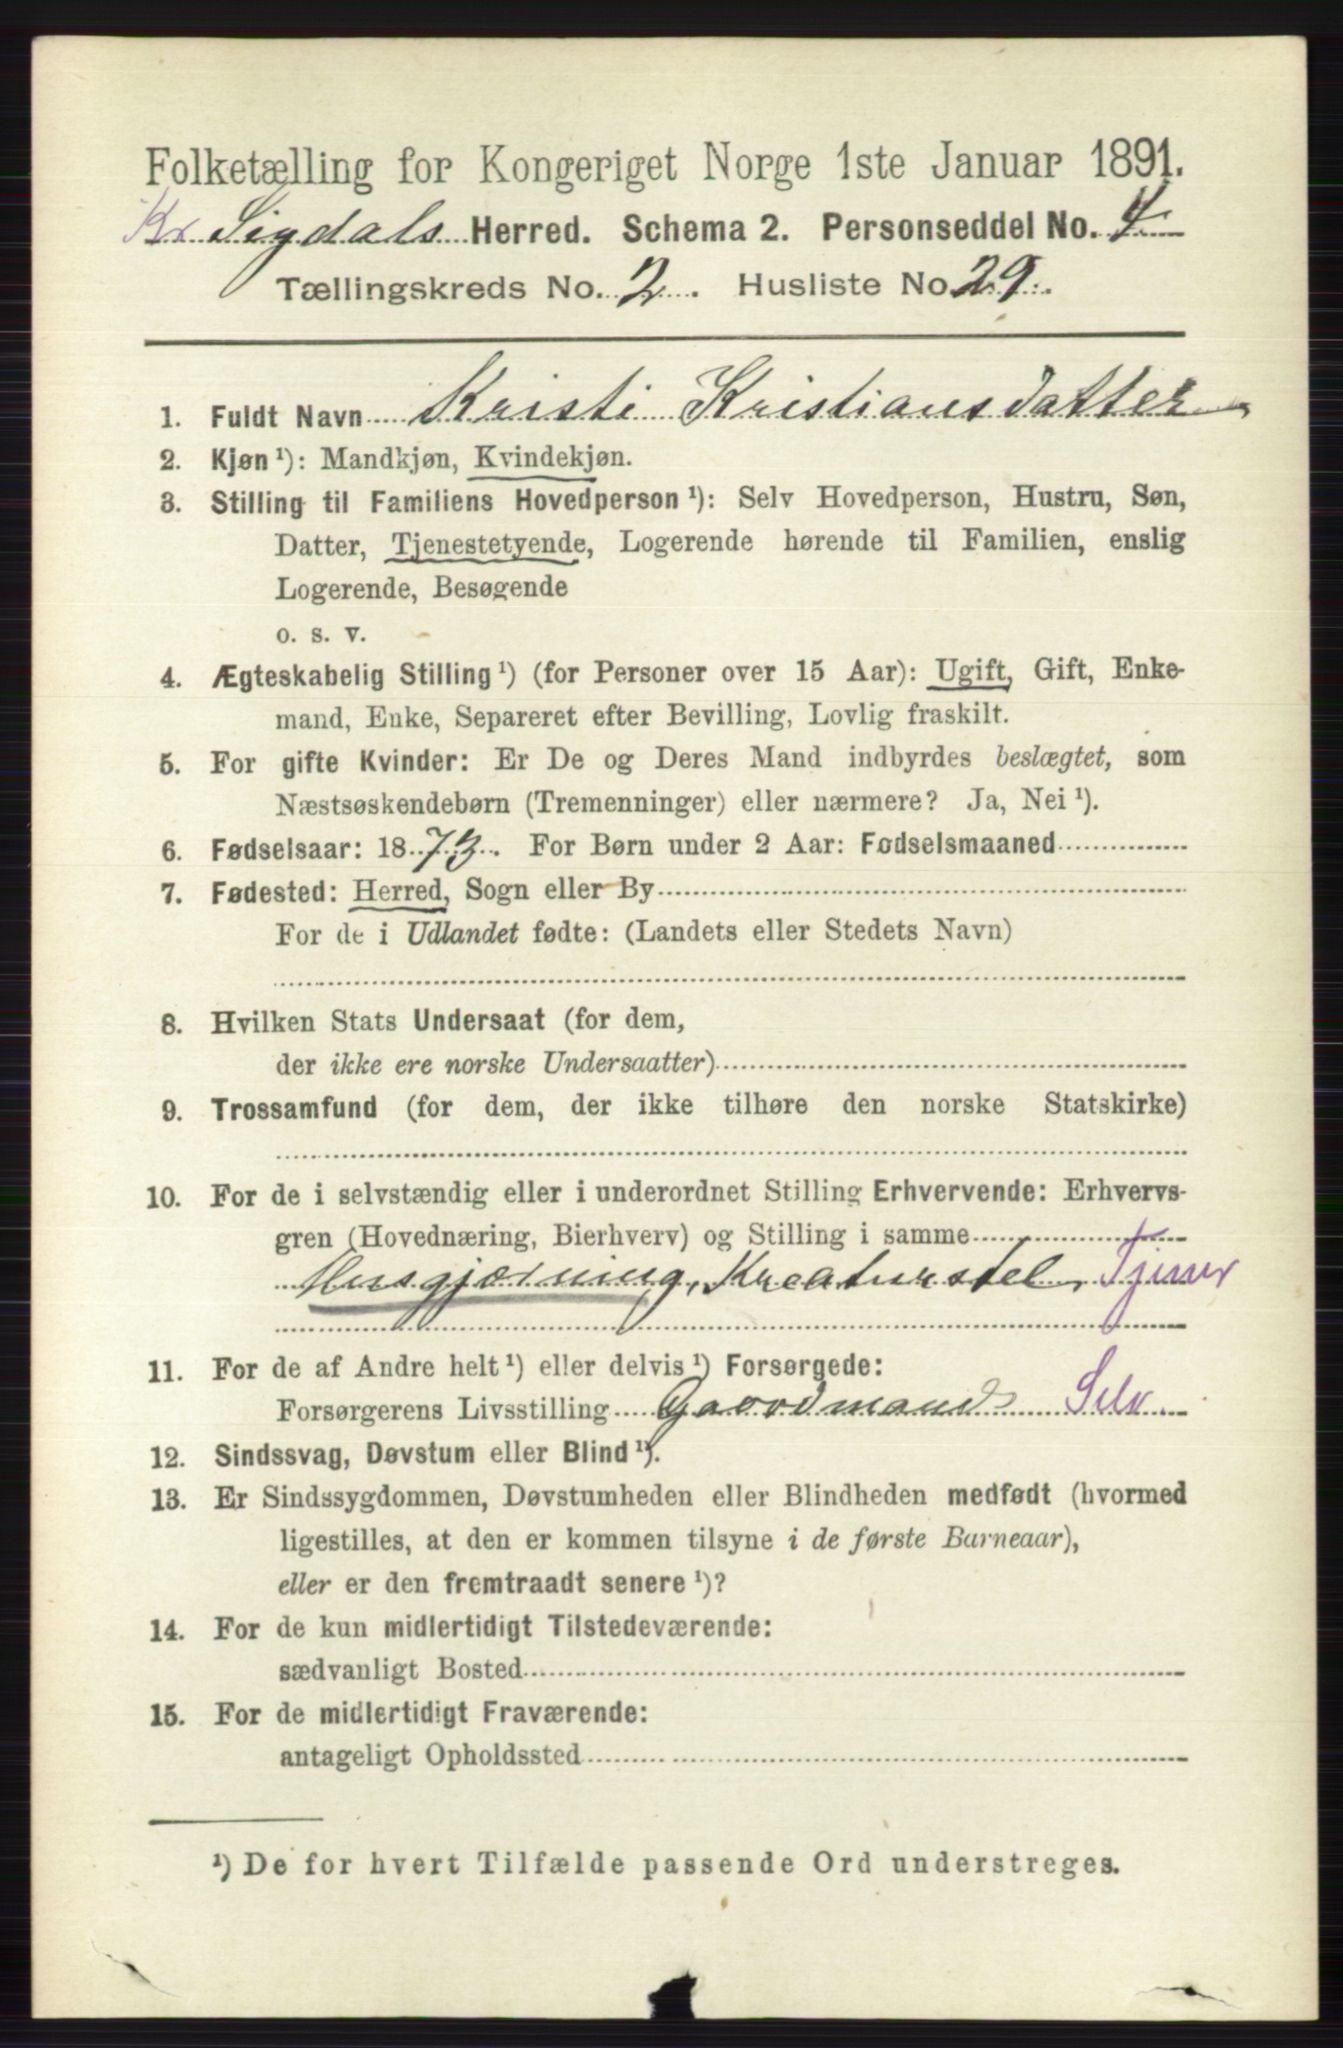 Folketælling for Kongeriget Norge 1ste Januar 1891.
Kr Sigdals Herred. Schema 2. Personseddel No. 4
Tællingskreds No. 2. Husliste No. 29.
1. Fuldt Navn Kristi Kristiansdatter
2. Kjøn ¹): Mandkjøn, Kvindekjøn.
3. Stilling til Familiens Hovedperson ¹): Selv Hovedperson, Hustru, Søn,
Datter, Tjenestetyende, Logerende hørende til Familien, enslig
Logerende, Besøgende
o. s. v.
4. Ægteskabelig Stilling ¹) (for Personer over 15 Aar): Ugift, Gift, Enke-
mand, Enke, Separeret efter Bevilling, Lovlig fraskilt.
5. For gifte Kvinder: Er De og Deres Mand indbyrdes beslægtet, som
Næstsøskendebørn (Tremenninger) eller nærmere? Ja, Nei ¹).
6. Fødselsaar: 1873. For Børn under 2 Aar: Fødselsmaaned
7. Fødested: Herred, Sogn eller By
For de i Udlandet fødte: (Landets eller Stedets Navn)
8. Hvilken Stats Undersaat (for dem,
der ikke ere norske Undersaatter)
9. Trossamfund (for dem, der ikke tilhøre den norske Statskirke)
10. For de i selvstændig eller i underordnet Stilling Erhvervende: Erhvervs-
gren (Hovednæring, Bierhverv) og Stilling i samme
Husgjærning, Kreaturstel, Tjener
11. For de af Andre helt ¹) eller delvis ¹) Forsørgede:
Forsørgerens Livsstilling Gaardmand Selv
12. Sindssvag, Døvstum eller Blind ¹).
13. Er Sindssygdommen, Døvstumheden eller Blindheden medfødt (hvormed
ligestilles, at den er kommen tilsyne i de første Barneaar),
eller er den fremtraadt senere ¹)?
14. For de kun midlertidigt Tilstedeværende:
sædvanligt Bosted
15. For de midlertidigt Fraværende:
antageligt Opholdssted
¹) De for hvert Tilfælde passende Ord understreges.